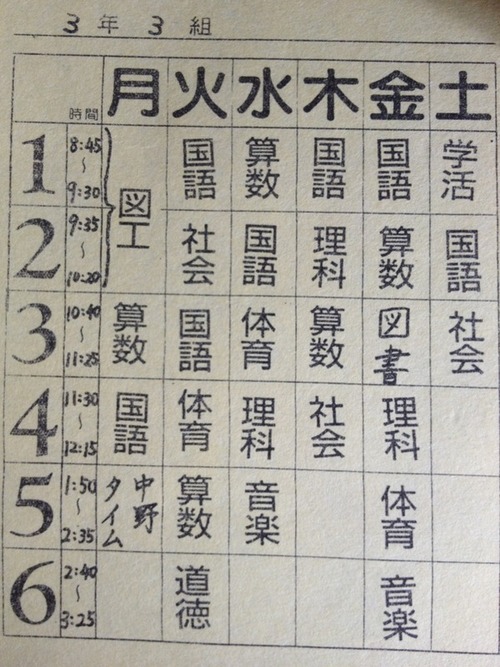 3年 3組
時間 月 火 水 木 金 土
1 8:45～9:30 図工 国語 算数 国語 国語 学活
2 9:35～10:20 社会 国語 理科 算数 国語
3 10:40～11:25 算数 国語 体育 算数 図書 社会
4 11:30～12:15 国語 体育 理科 社会 理科
5 1:50～2:35 中野タイム 算数 音楽 体育
6 2:40～3:25 道徳 音楽